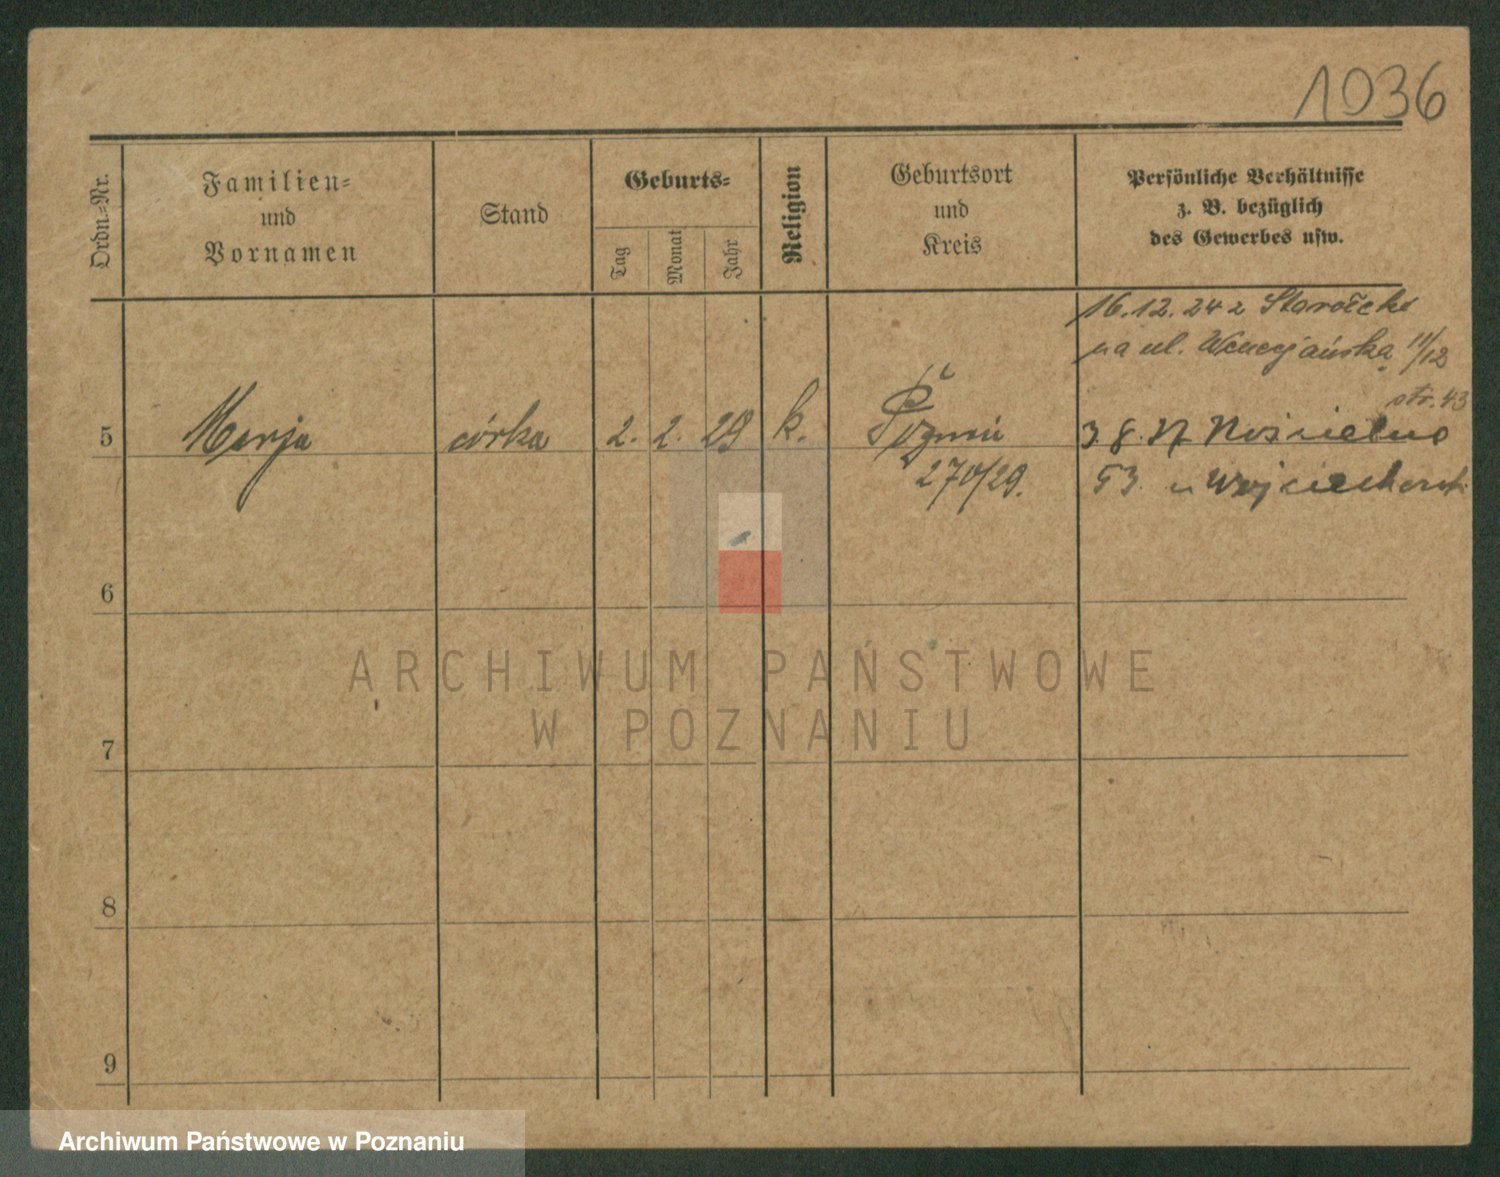 1036
Ordn.=Nr.
Familien=
und
Vornamen
Stand
Geburts=
Tag
Monat
Jahr
Religion
Geburtsort
und
Kreis
Persönliche Verhältnisse
z. B. bezüglich
des Gewerbes usw.
16.12.24 z Starołęki
na ul. Wenecjańska 11/12
str. 43
5 Marja córka 2. 2. 29 k. Poznań
270/29.
53 u Wojciechowsk.
6
7
8
9
ARCHIWUM PAŃSTWOWE
W POZNANIU
Archiwum Państwowe w Poznaniu